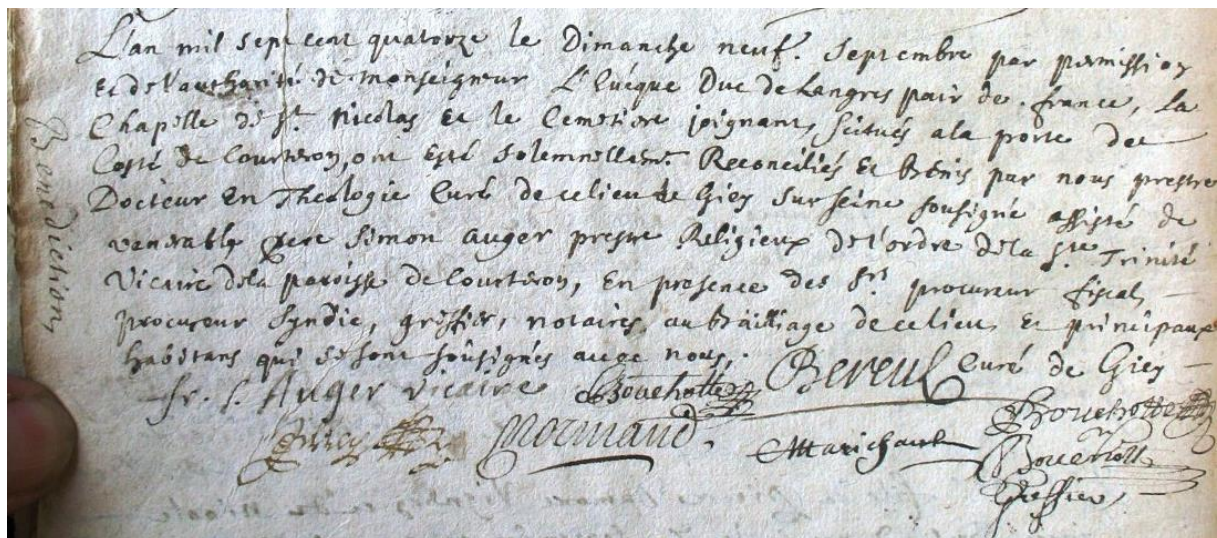 L'an mil sept cent quatorze le Dimanche neuf. Septembre par permission
et de l'authorité de monseigneur L'Evêque Duc de Langres pair de france, La
Chapelle de St. Nicolas et le Cemetiere joignant, scitués a la porte du
Costé de Courteron, ont esté solemnellemt. Reconciliés et bénis par nous prestre
Docteur en Theologie Curé de ce lieu de Giey sur seine sousigné assisté de
venerable frere simon auger prestre Religieux de l'ordre de la Ste. Trinité
Vicaire de la paroisse de Courteron, en presence des Srs. procureur fiscal,
procureur syndic, greffier, notaires au bailliage de ce lieu et principaux
habitans qui se sont sousignés avec nous.
Benediction
fr. S. Auger vicaire Bouchotte Bereul Curé de Giey
Normand. Marichault Bouchotte
Greffier